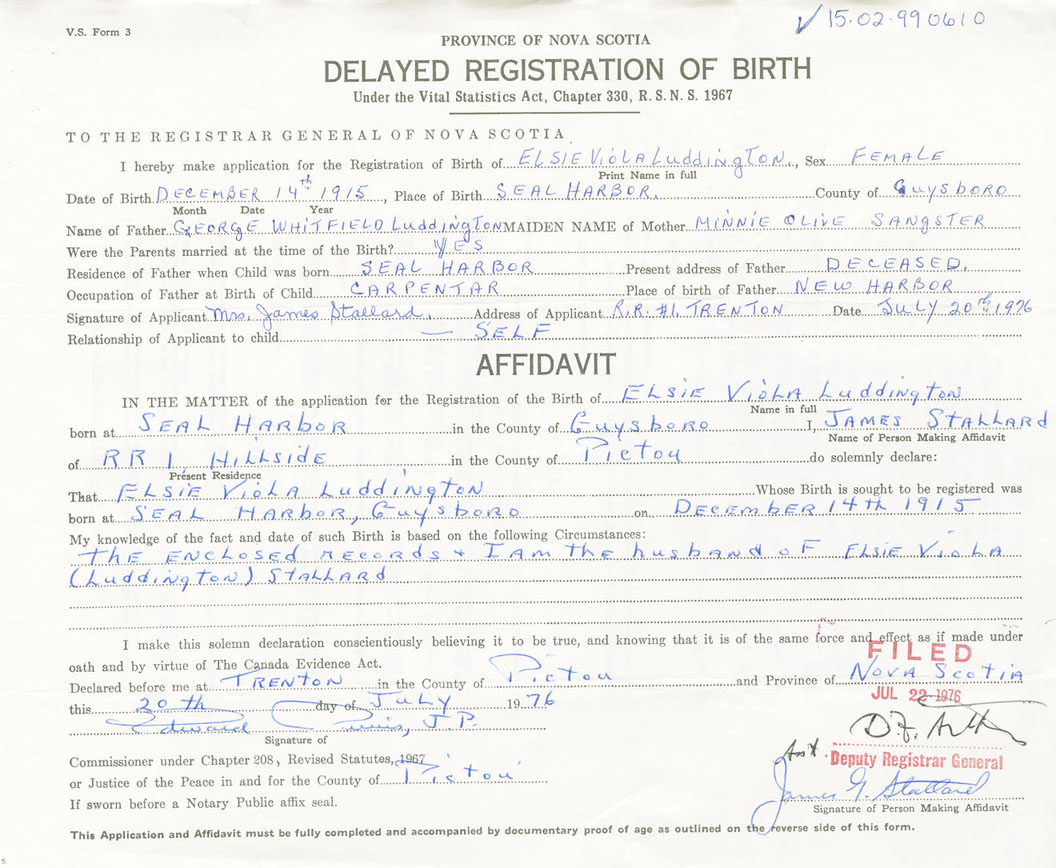 V.S. Form 3
✓ 15-02-990610
PROVINCE OF NOVA SCOTIA
DELAYED REGISTRATION OF BIRTH
Under the Vital Statistics Act, Chapter 330, R.S.N.S. 1967
TO THE REGISTRAR GENERAL OF NOVA SCOTIA
I hereby make application for the Registration of Birth of ELSIE VIOLA LuddingTON, Sex FEMALE
Print Name in full
Date of Birth DECEMBER 14th 1915, Place of Birth SEAL HARBOR, County of Guysboro
Month Date Year
Name of Father GEORGE WHITFIELD LuddingTON MAIDEN NAME of Mother MINNIE OLIVE SANGSTER
Were the Parents married at the time of the Birth? YES
Residence of Father when Child was born SEAL HARBOR Present address of Father DECEASED.
Occupation of Father at Birth of Child CARPENTAR Place of birth of Father NEW HARBOR
Signature of Applicant Mrs. James Stallard. Address of Applicant R.R. #1, TRENTON Date July 20th 1976
Relationship of Applicant to child — SELF
AFFIDAVIT
IN THE MATTER of the application for the Registration of the Birth of ELSIE VIOLA LuddingTON
Name in full
born at SEAL HARBOR in the County of Guysboro I, JAMES STALLARD
Name of Person Making Affidavit
of RR 1 HILLSIDE in the County of Pictou do solemnly declare:
Present Residence
That ELSIE VIOLA LuddingTON Whose Birth is sought to be registered was
born at SEAL HARBOR, Guysboro on DECEMBER 14TH 1915
My knowledge of the fact and date of such Birth is based on the following Circumstances:
The ENCLOSED RECORDS + I AM THE husband OF ELSIE VIOLA
(LuddingTON) STALLARD
I make this solemn declaration conscientiously believing it to be true, and knowing that it is of the same force and effect as if made under
oath and by virtue of The Canada Evidence Act.
FILED
Declared before me at TRENTON in the County of Pictou and Province of NOVA SCOTIA
this 20th day of July 1976
JUL 22 1976
Edward J.P.
Signature of
Commissioner under Chapter 208, Revised Statutes, 1967
Ass't. Deputy Registrar General
or Justice of the Peace in and for the County of Pictou
James G. Stallard
Signature of Person Making Affidavit
If sworn before a Notary Public affix seal.
This Application and Affidavit must be fully completed and accompanied by documentary proof of age as outlined on the reverse side of this form.